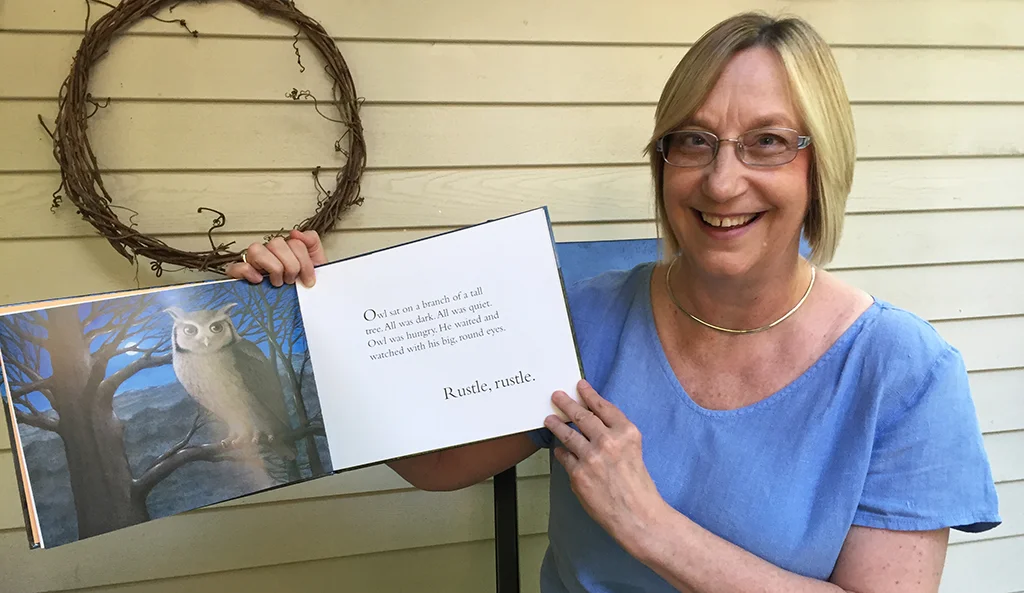 Owl sat on a branch of a tall
tree. All was dark. All was quiet.
Owl was hungry. He waited and
watched with his big, round eyes.
Rustle, rustle.